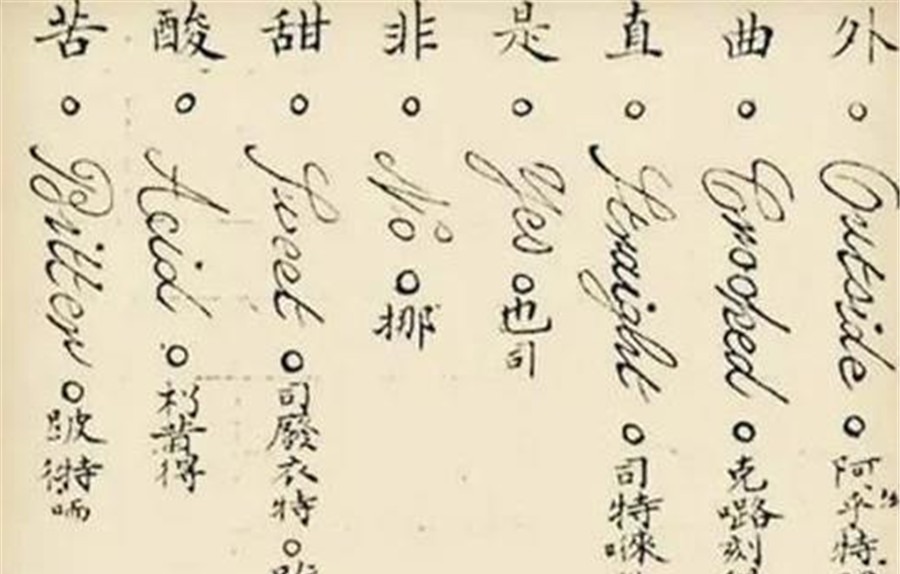 外。Outside。阿乎特
曲。Crooked。克嚕刻
直。Straight。司特嚟
是。Yes。也司
非。No。挪
甜。Sweet。司廢衣特。
酸。Acid。得
苦。Bitter。跛特